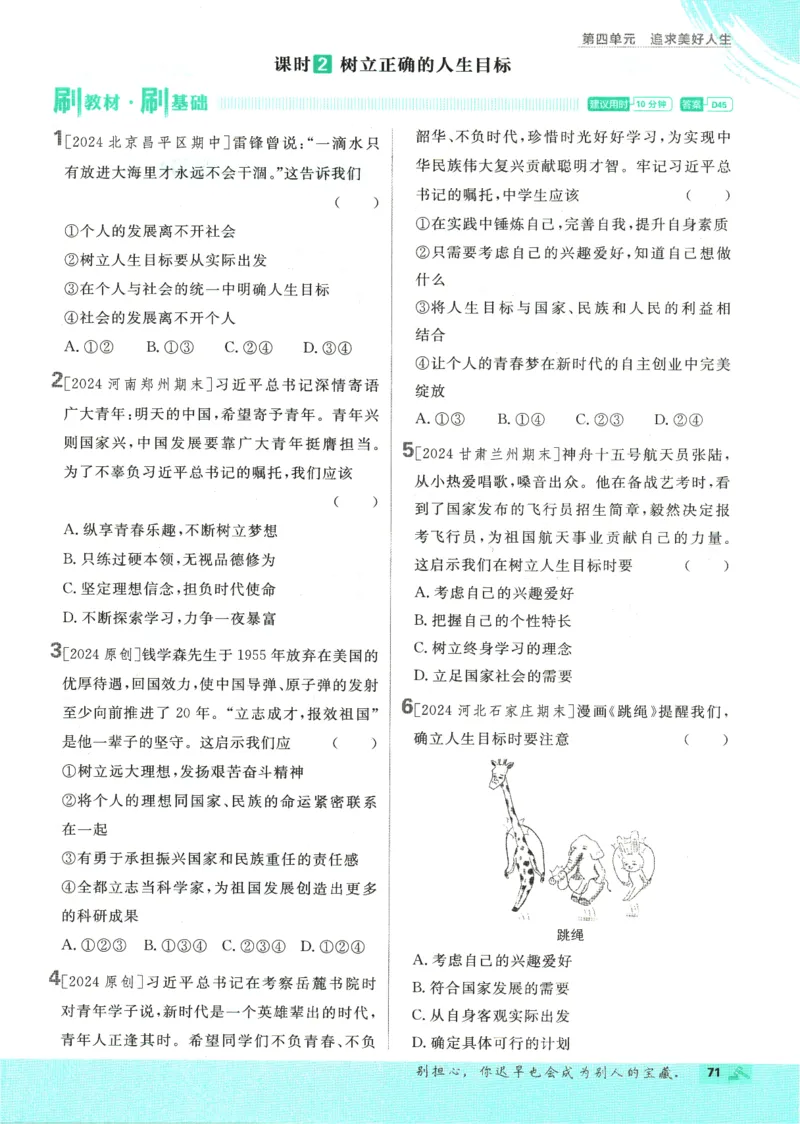 第四单元 追求美好人生
课时2 树立正确的人生目标
刷教材·刷基础
建议用时 10分钟 答案 D45
1[2024北京昌平区期中]雷锋曾说:“一滴水只
有放进大海里才永远不会干涸。”这告诉我们
( )
①个人的发展离不开社会
②树立人生目标要从实际出发
③在个人与社会的统一中明确人生目标
④社会的发展离不开个人
A.①② B.①③ C.②④ D.③④
2[2024河南郑州期末]习近平总书记深情寄语
广大青年:明天的中国,希望寄予青年。青年兴
则国家兴,中国发展要靠广大青年挺膺担当。
为了不辜负习近平总书记的嘱托,我们应该
( )
A.纵享青春乐趣,不断树立梦想
B.只练过硬本领,无视品德修为
C.坚定理想信念,担负时代使命
D.不断探索学习,力争一夜暴富
3[2024原创]钱学森先生于1955年放弃在美国的
优厚待遇,回国效力,使中国导弹、原子弹的发射
至少向前推进了20年。“立志成才,报效祖国”
是他一辈子的坚守。这启示我们应 ( )
①树立远大理想,发扬艰苦奋斗精神
②将个人的理想同国家、民族的命运紧密联系
在一起
③有勇于承担振兴国家和民族重任的责任感
④全都立志当科学家,为祖国发展创造出更多
的科研成果
A.①②③ B.①③④ C.②③④ D.①②④
4[2024原创]习近平总书记在考察岳麓书院时
对青年学子说,新时代是一个英雄辈出的时代,
青年人正逢其时。希望同学们不负青春、不负
韶华、不负时代,珍惜时光好好学习,为实现中
华民族伟大复兴贡献聪明才智。牢记习近平总
书记的嘱托,中学生应该 ( )
①在实践中锤炼自己,完善自我,提升自身素质
②只需要考虑自己的兴趣爱好,知道自己想做
什么
③将人生目标与国家、民族和人民的利益相
结合
④让个人的青春梦在新时代的自主创业中完美
绽放
A.①③ B.①④ C.②③ D.②④
5[2024甘肃兰州期末]神舟十五号航天员张陆,
从小热爱唱歌,嗓音出众。他在备战艺考时,看
到了国家发布的飞行员招生简章,毅然决定报
考飞行员,为祖国航天事业贡献自己的力量。
这启示我们在树立人生目标时要 ( )
A.考虑自己的兴趣爱好
B.把握自己的个性特长
C.树立终身学习的理念
D.立足国家社会的需要
6[2024河北石家庄期末]漫画《跳绳》提醒我们,
确立人生目标时要注意 ( )
跳绳
A.考虑自己的兴趣爱好
B.符合国家发展的需要
C.从自身客观实际出发
D.确定具体可行的计划
别担心,你迟早也会成为别人的宝藏. 71